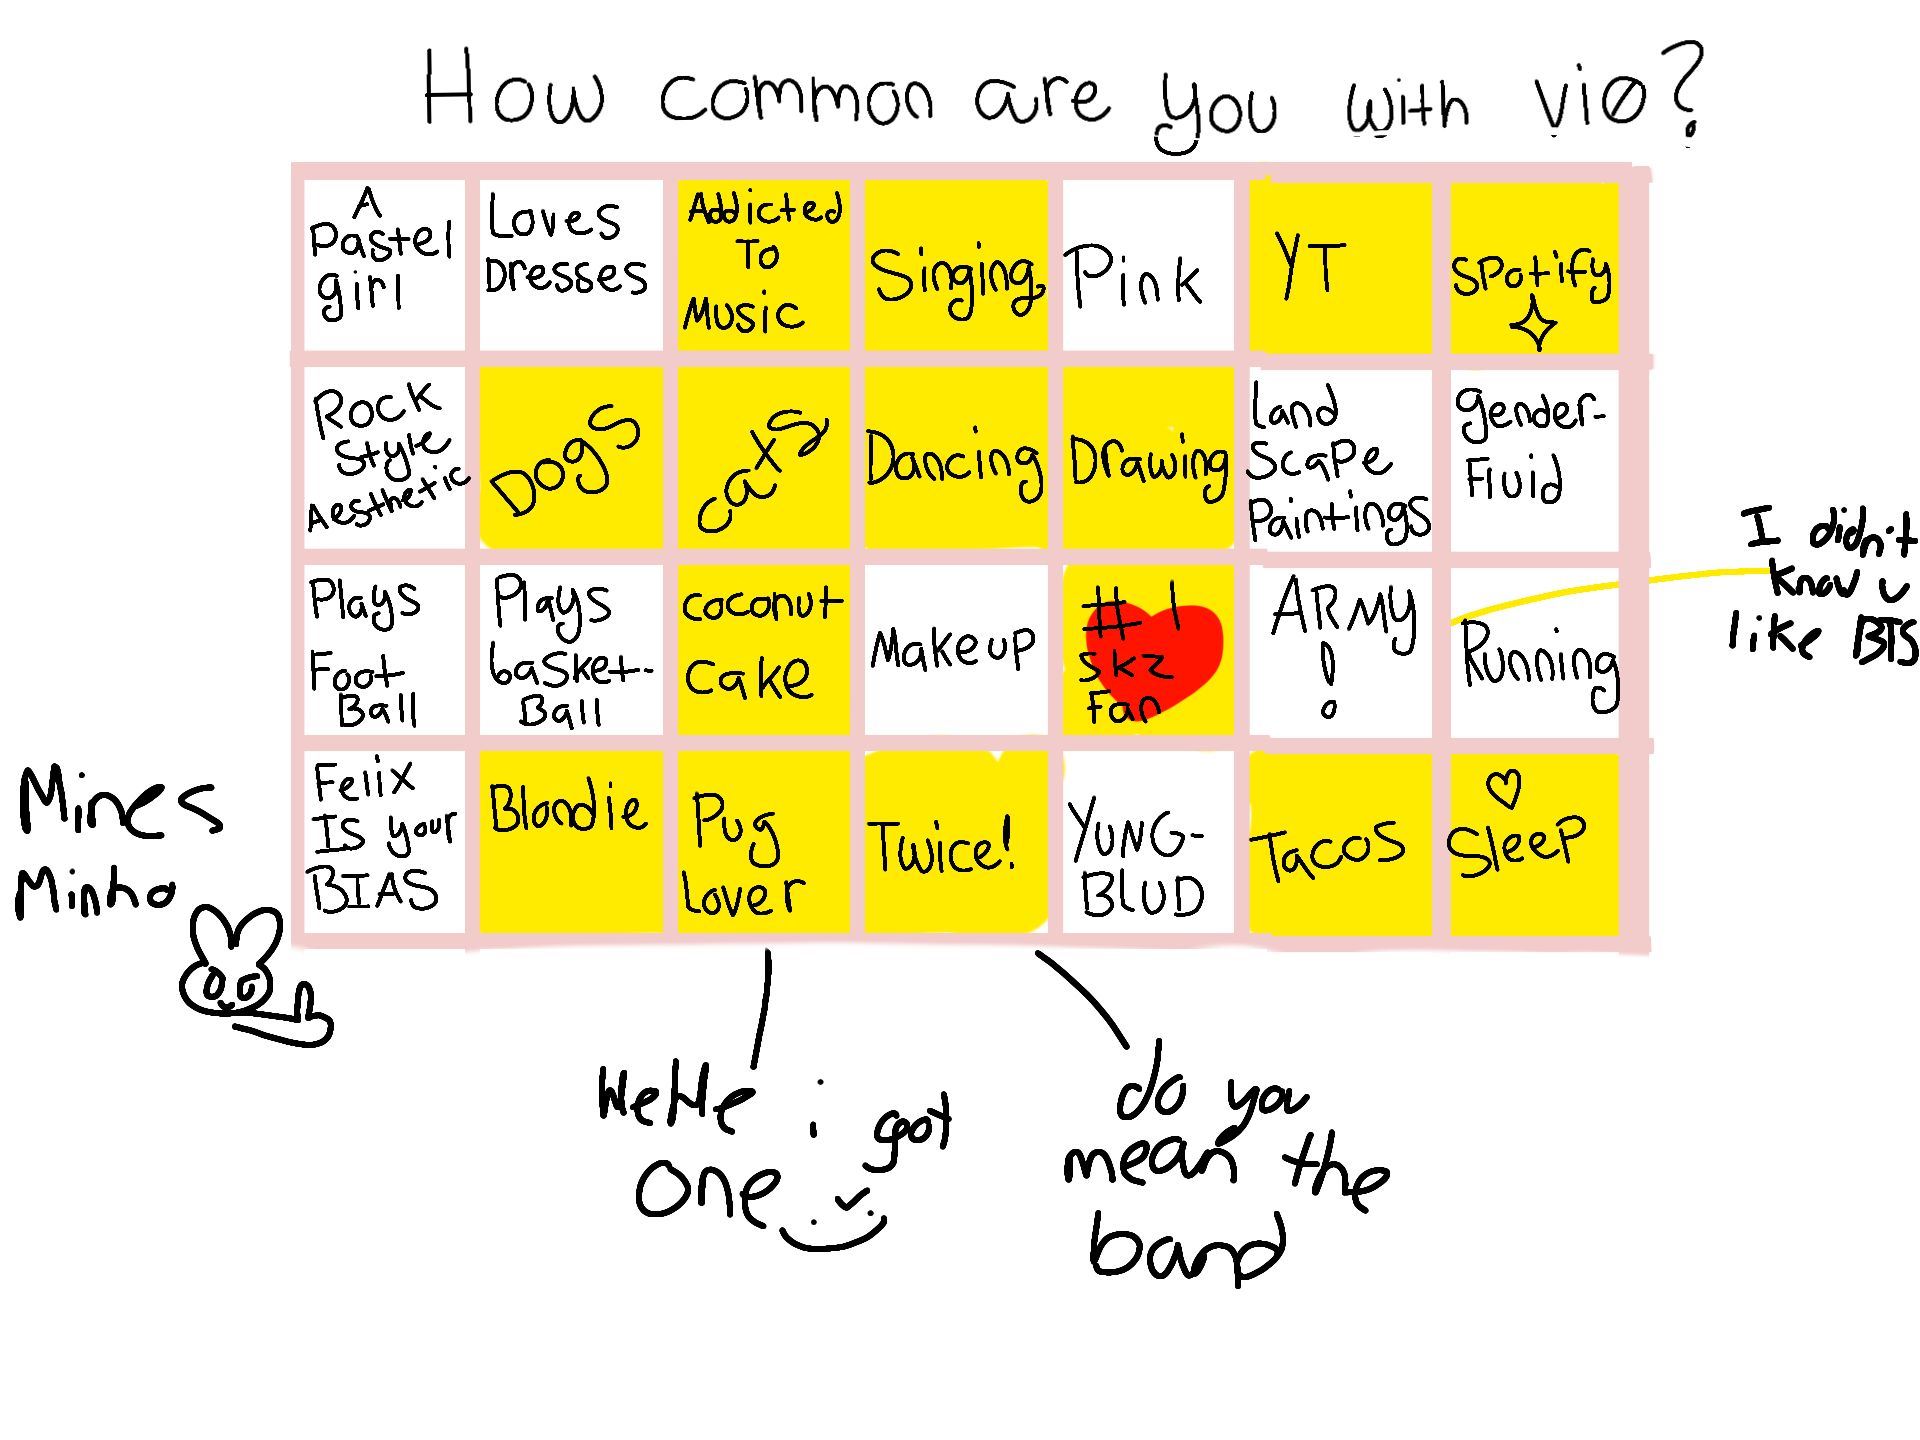 How common are you with viø?
A
Pastel
girl
Loves
Dresses
Addicted
To
Music
Singing
Pink
YT
Spotify
Rock
Style
Aesthetic
Dogs
Caxs
Dancing
Drawing
Land
Scape
Paintings
Gender-
Fluid
Plays
Foot
Ball
Plays
basket-
Ball
coconut
cake
Makeup
#1
skz
Fan
ARMY
!
Running
I didn't
know u
like BTS
Felix
Is your
BIAS
Blondie
Pug
Lover
Twice!
YUNG-
BLUD
Tacos
Sleep
Mines
Minho
i got
one
do you
mean the
band